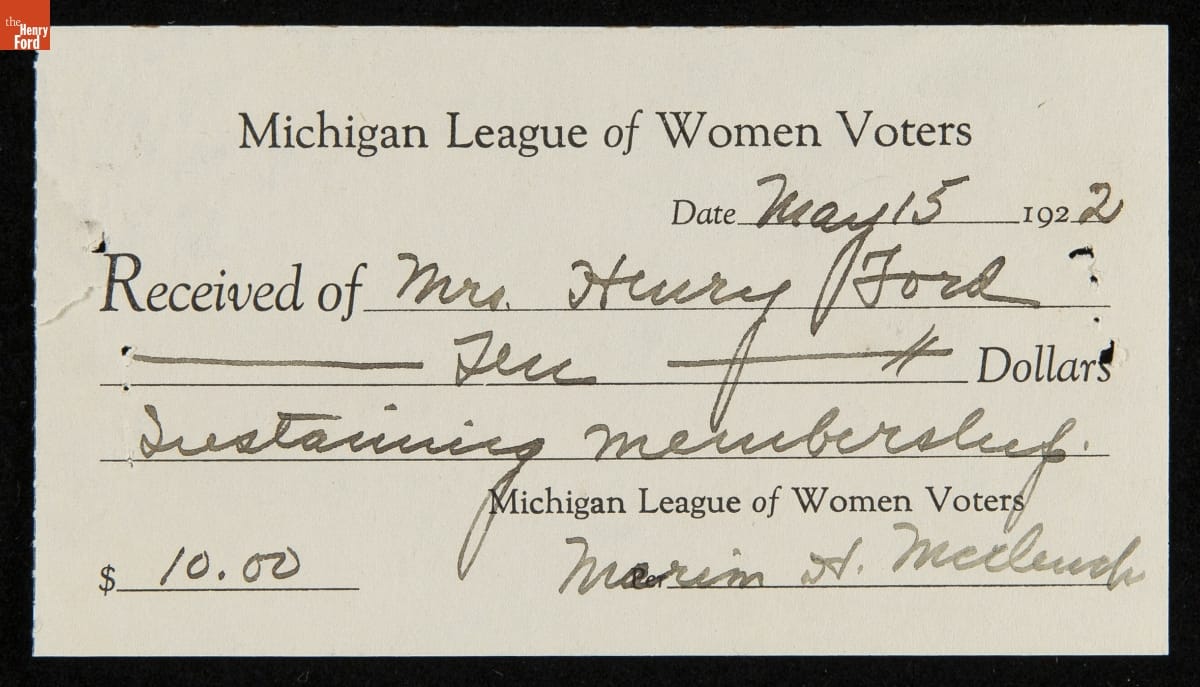 the
Henry
Ford
Michigan League of Women Voters
Date May 15 1922
Received of Mrs. Henry Ford
Ten Dollars
Sustaining membership.
Michigan League of Women Voters
$ 10.00 Per H.